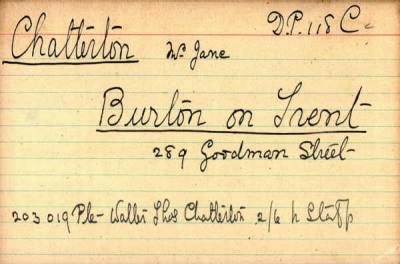 D.P. 118 C
Chatterton Mrs Jane
Burton on Trent
289 Goodman Street
203019 Pte Walter Thos Chatterton 2/6 N Staffs